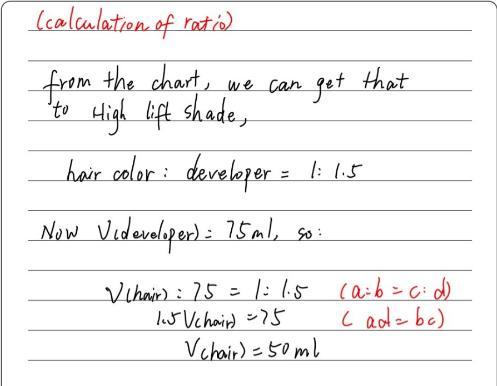 (calculation of ratio)
from the chart, we can get that
to High lift shade,
hair color : developer = 1 : 1.5
Now V(developer) = 75ml, so :
V(hair) : 75 = 1 : 1.5 (a:b = c:d)
1.5 V(hair) = 75 (ad = bc)
V(hair) = 50 ml